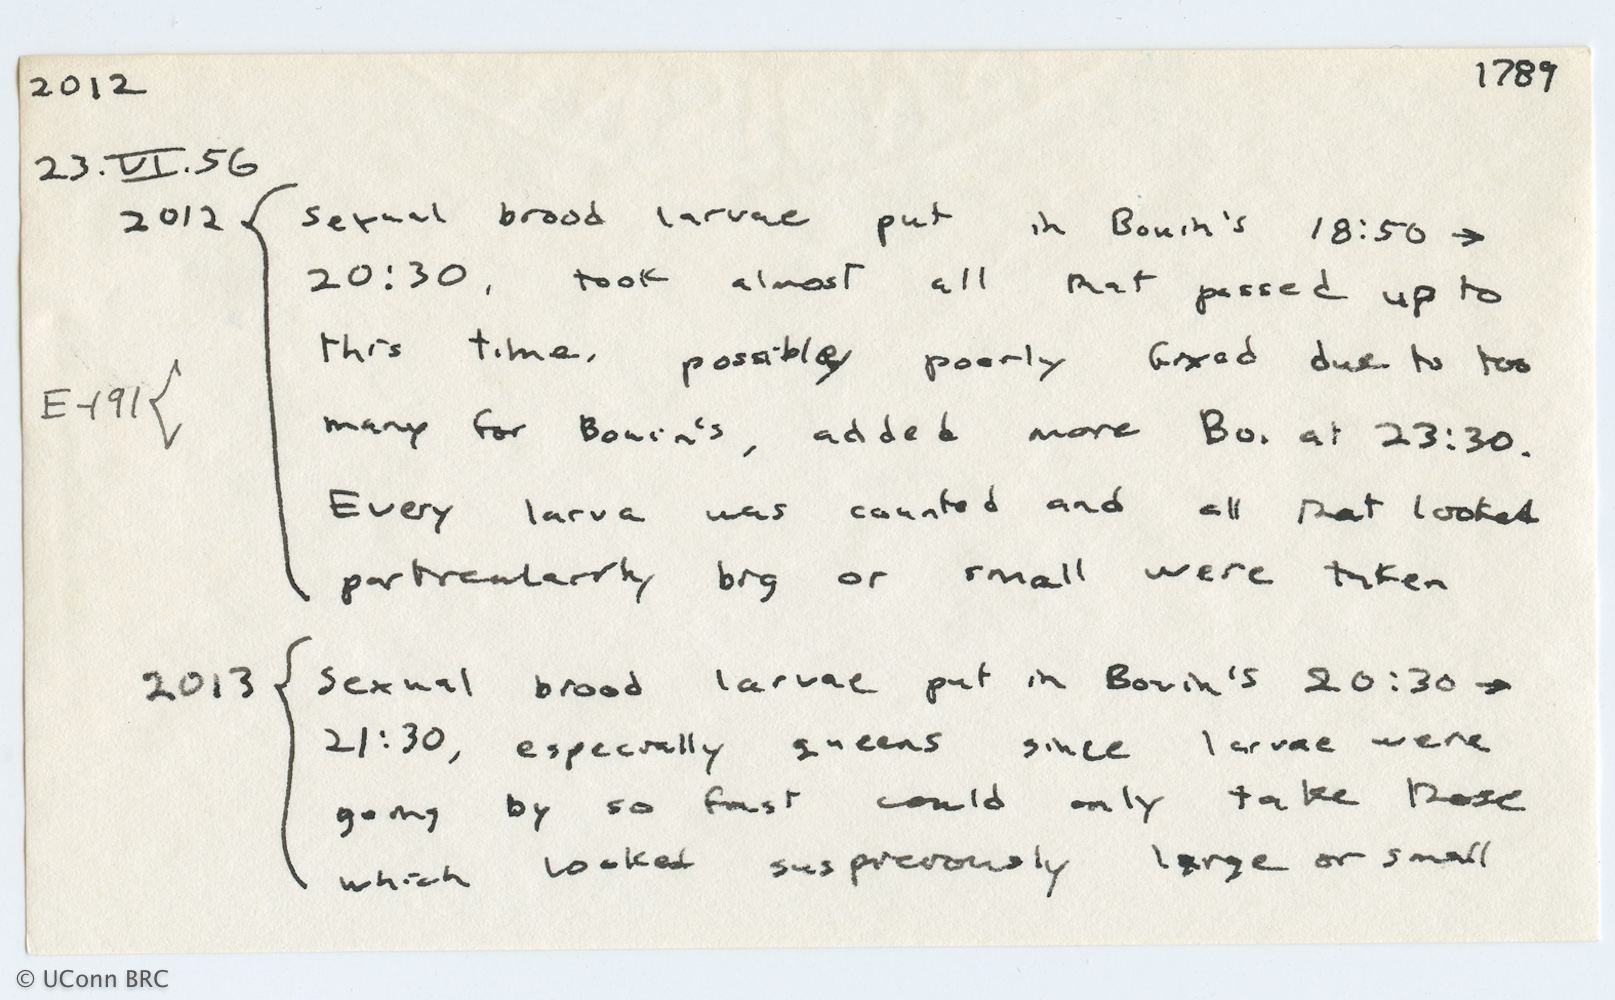 2012 1789
23.VI.56
2012 { Sexual brood larvae put in Bouin's 18:50 →
20:30, took almost all that passed up to
this time, possibly poorly fixed due to too
E-191 { many for Bouin's, added more Bo. at 23:30.
Every larva was counted and all that looked
particularly big or small were taken
2013 { Sexual brood larvae put in Bouin's 20:30 →
21:30, especially queens since larvae were
going by so fast could only take those
which looked suspiciously large or small
© UConn BRC